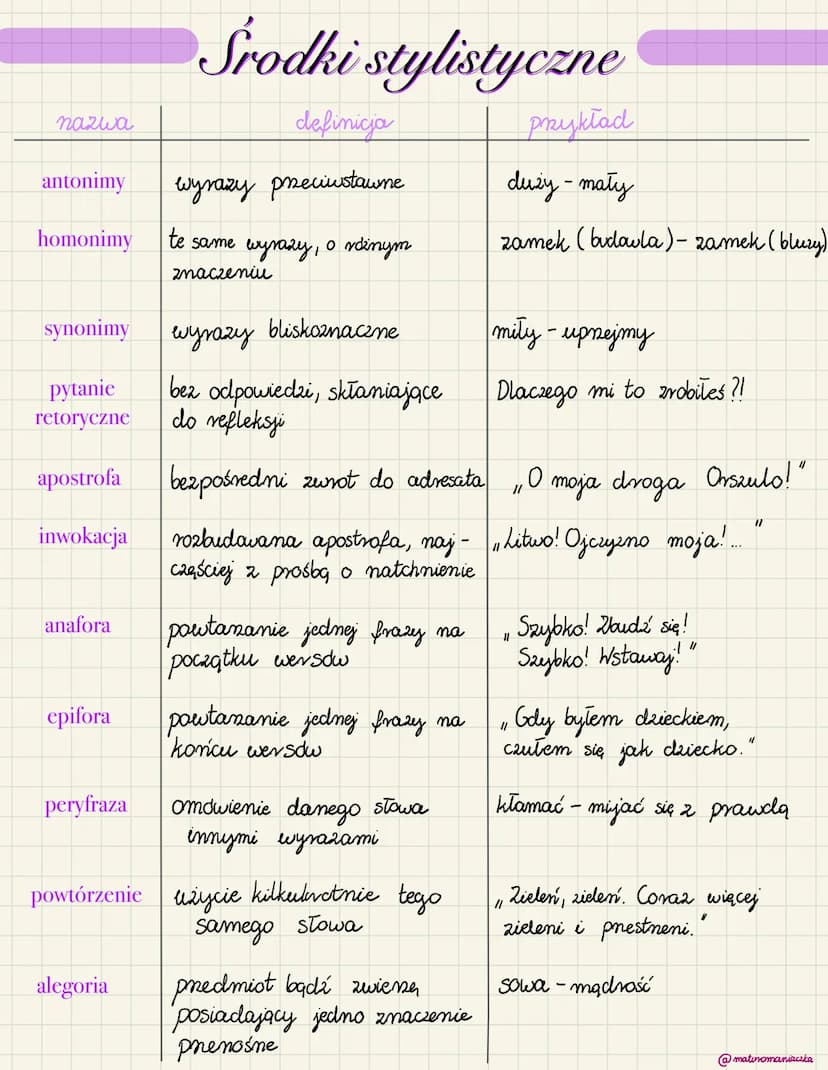 Środki stylistyczne
nazwa definicja przykład
antonimy wyrazy przeciwstawne duży - mały
homonimy te same wyrazy, o różnym zamek (budowla) - zamek (bluzy)
znaczeniu
synonimy wyrazy bliskoznaczne miły - uprzejmy
pytanie bez odpowiedzi, skłaniające Dlaczego mi to zrobiłeś?!
retoryczne do refleksji
apostrofa bezpośredni zwrot do adresata „O moja droga Orszulo!"
inwokacja rozbudowana apostrofa, naj- „Litwo! Ojczyzno moja!..."
częściej z prośbą o natchnienie
anafora powtarzanie jednej frazy na „Szybko! Zbudź się!
początku wersów Szybko! Wstawaj!"
epifora powtarzanie jednej frazy na „Gdy byłem dzieckiem,
końcu wersów czułem się jak dziecko."
peryfraza omówienie danego słowa kłamać - mijać się z prawdą
innymi wyrazami
powtórzenie użycie kilkukrotnie tego „Zieleń, zieleń. Coraz więcej
samego słowa zieleni i przestrzeni."
alegoria przedmiot bądź zwierzę sowa - mądrość
posiadający jedno znaczenie
przenośne
@maturomaniaczka